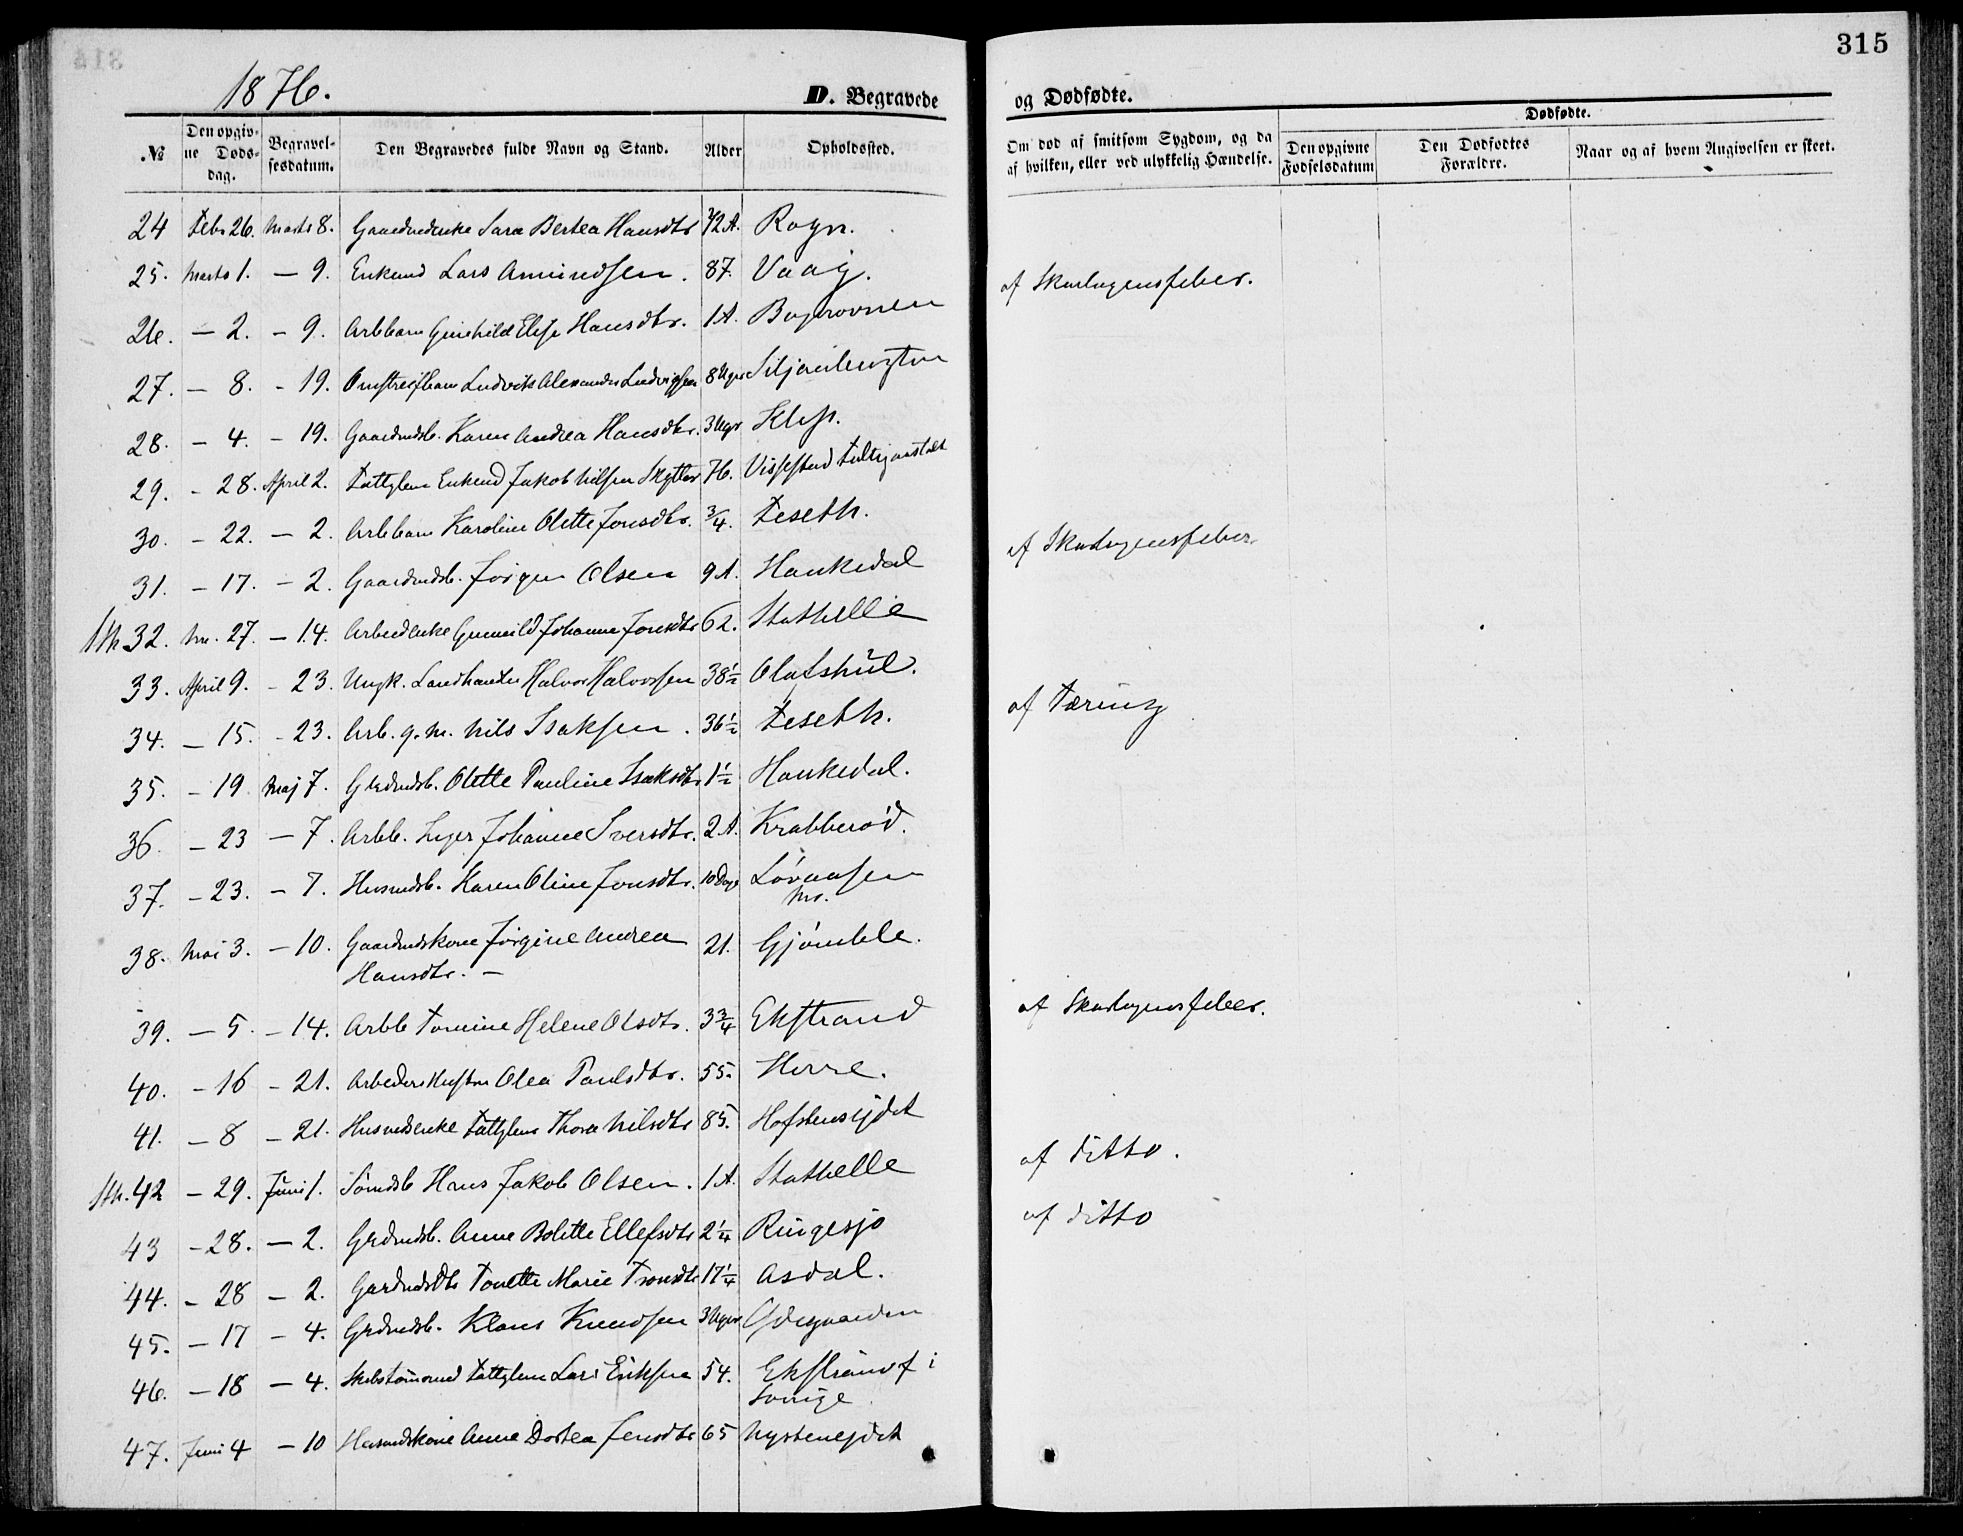 315
1876.
D. Begravede
og Dødfødte.
№
Den opgiv-
ne Døds-
dag.
Begravel-
sesdatum.
Den Begravedes fulde Navn og Stand.
Alder
Opholdssted.
Om død af smitsom Sygdom, og da
af hvilken, eller ved ulykkelig Hændelse.
Dødfødte.
Den opgivne
Fødselsdatum
Den Dødfødtes
Forældre.
Naar og af hvem Angivelsen er skeet.
24 Feb. 26. Marts 8. Gaardmdenke Sara Bertea Hansdtr 72 A. Rogn.
25. Marts 1. — 9. Enkemd Lars Amundsen. 87. Vaag. af Skarlagensfeber.
26. — 2. — 9. Arbbarn Gunhild Elise Hansdtr. 1 A.
27. — 8. — 19. Ludvik Alexander Ludvigsen 8 Uger
28. — 4. — 19. Gaardmdsb. Karen Andrea Hansdtr. 3 Ugr Klep.
29. — 28. April 2. Fattiglem Enkemd Jakob Nilsen 76.
30. — 22. — 2. Arbbarn Karoline Olette Jonsdtr. 3/4. Feseth. af Skarlagensfeber
31. — 17. — 2. Gaardmdsb. Jørgen Olsen 9 A. Haukedal
Sth. 32. M. 27. — 14. Arbeidenke Gunnild Johanne Jonsdtr 62. Stathelle
33. April 9. — 23. Ungk. Landhandler Halvor Halvorsen 38½ Olafshul. af Tæring
34. — 15. — 23. Arb. g. m. Nils Isaksen. 36½ Feseth.
35. — 19 Maj 7. Grdmdsb. Olette Pauline Isaksdtr 1½ Haukedal.
36. — 23 — 7. Arbb. Inger Johanne Iversdtr. 2 A. Krabberød.
37. — 23. — 7. Husmdsb. Karen Oline Jonsdtr. 10 Dage Løvaasen
38. Mai 3. — 10. Gaardmdskone Jørgine Andrea 21. Gjømle.
Hansdtr. —
39. — 5. — 14. Arbb Tomine Helene Olsdtr. 3¾ Ekstrand af Skarlagensfeber.
40. — 16 — 21. Arbeiders Hustru Olea Paulsdtr. 55. Herre.
41. — 8 — 21. Husmdsenke Fattiglem Thora Nilsdtr 85.
af ditto.
Sth. 42 — 29. Juni 1. Sømdsb Hans Jakob Olsen. 1 A. Stathelle
af ditto
43 — 28. — 2. Grdmdsb. Anne Bolette Ellefsdtr 2¼ Ringesjø
44. — 28 — 2. Gardmdsdtr Tonette Marie 17¼ Asdal.
45. — 17 — 4. Grdmdsb. Klaus Knudsen 3 Uger Ødegaarden
46. — 18 — 4. Skibstømmermd Fattiglem Lars Eriksen 54. Ekstrand f i
Sverige
47. Juni 4 — 10 Husmdskone Anne Dortea Jensdtr 65 Nystenejdet